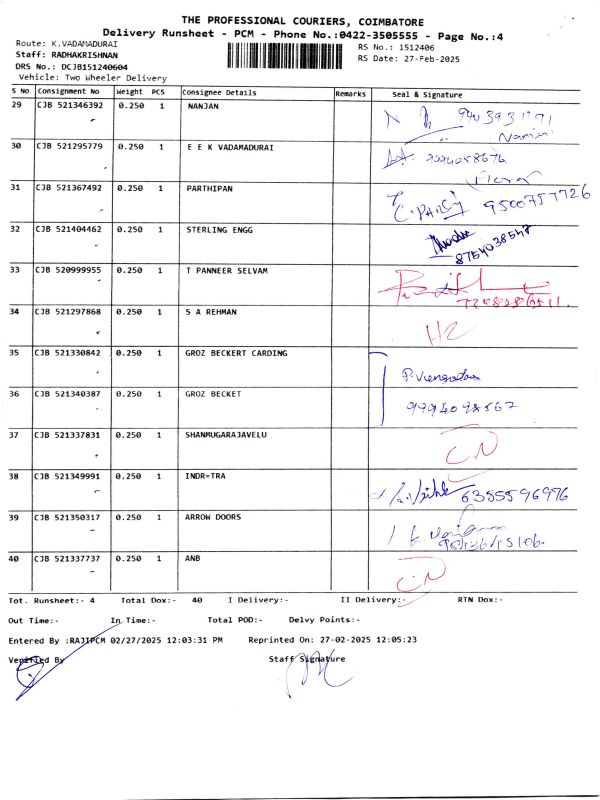 THE PROFESSIONAL COURIERS, COIMBATORE
Delivery Runsheet - PCM - Phone No.:0422-3505555 - Page No.:4
Route: K.VADAMADURAI
RS No.: 1512406
Staff: RADHAKRISHNAN
RS Date: 27-Feb-2025
DRS No.: DCJB151240604
Vehicle: Two Wheeler Delivery
S No Consignment No Weight PCS Consignee Details Remarks Seal & Signature
29 CJB 521346392 0.250 1 NANJAN
30 CJB 521295779 0.250 1 E E K VADAMADURAI
31 CJB 521367492 0.250 1 PARTHIPAN 9500757726
32 CJB 521404462 0.250 1 STERLING ENGG
8754038547
33 CJB 520999955 0.250 1 T PANNEER SELVAM
34 CJB 521297868 0.250 1 S A REHMAN
35 CJB 521330842 0.250 1 GROZ BECKERT CARDING
36 CJB 521340387 0.250 1 GROZ BECKET 9994098567
37 CJB 521337831 0.250 1 SHANMUGARAJAVELU
38 CJB 521349991 0.250 1 INDR=TRA 6355596976
39 CJB 521350317 0.250 1 ARROW DOORS
40 CJB 521337737 0.250 1 ANB
Tot. Runsheet:- 4 Total Dox:- 40 I Delivery:- II Delivery:- RTN Dox:-
Out Time:- In Time:- Total POD:- Delvy Points:-
Entered By :RAJIPCM 02/27/2025 12:03:31 PM Reprinted On: 27-02-2025 12:05:23
Verified By Staff Signature